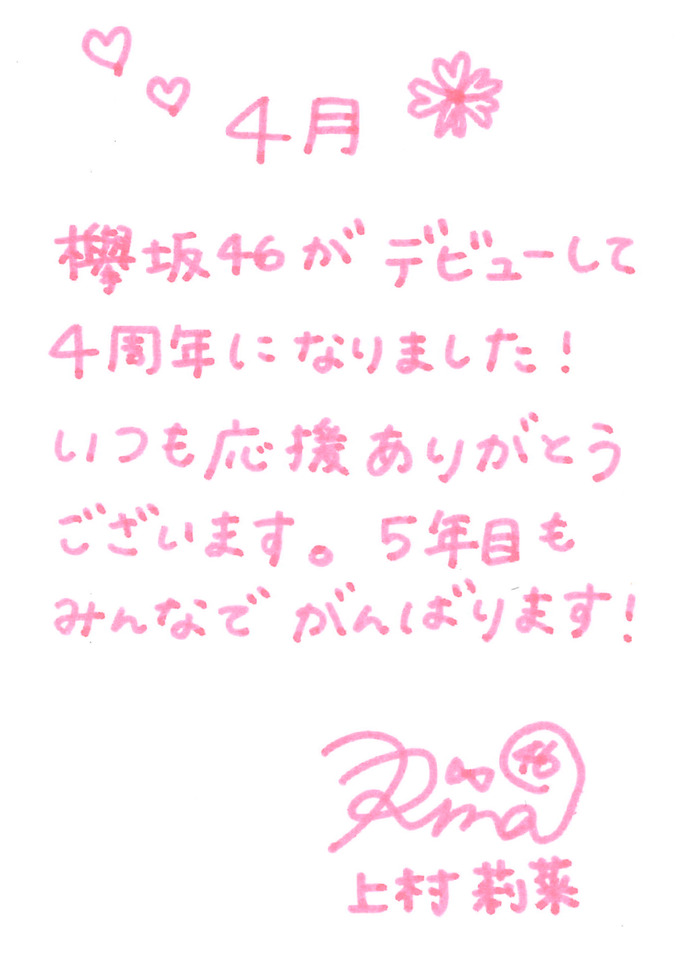 4月
欅坂46がデビューして
4周年になりました!
いつも応援ありがとう
ございます。5年目も
みんなでがんばります!
Rina
46
上村莉菜